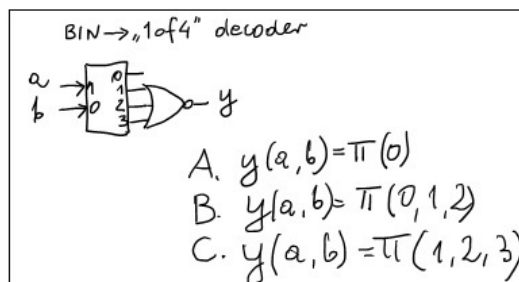 BIN→„1of4" decoder
0
a 1 1
b 0 2 y
3
A. y(a,b)=π(0)
B. y(a,b)=π(0,1,2)
C. y(a,b)=π(1,2,3)